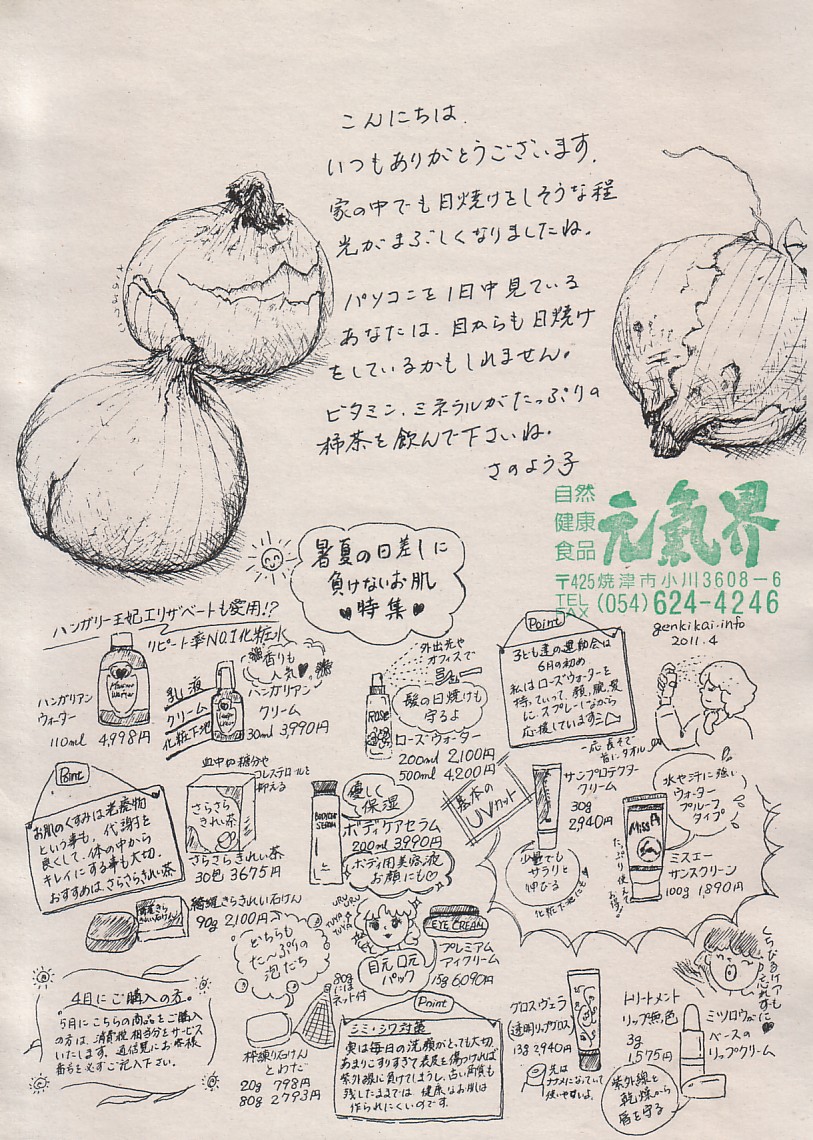 こんにちは.
いつもありがとうございます.
家の中でも日焼けをしそうな程
光がまぶしくなりましたね。
パソコンを1日中見ている
あなたは、目からも日焼け
をしているかもしれません。
ビタミン.ミネラルがたっぷりの
柿茶を飲んで下さいね。
さのよう子
自然
健康
食品
元氣界
〒425焼津市小川3608-6
TEL
FAX
(054)624-4246
genkikai.info
2011.4
暑夏の日差しに
負けないお肌
♥特集♥
ハンガリー王妃エリザベートも愛用!?
リピート率NO.1化粧水
ハンガリアン
ウォーター
110ml 4,998円
乳液
クリーム
化粧下地
香りも
人気
ハンガリアン
クリーム
30ml 3,990円
外出先や
オフィスで
ROSE
髪の日焼けも
守るよ
ローズウォーター
200ml 2,100円
500ml 4,200円
Point
子ども達の運動会は
6月の初め
私はローズウォーターを
持っていって、顔、腕、髪
にスプレーしながら
応援しています
Point
お肌のくすみは老廃物
という事も、代謝を
良くして、体の中から
キレイにする事も大切.
おすすめは、さらさらきれい茶
血中の糖分や
コレステロールを
抑える
さらさら
きれい茶
さらさらきれい茶
30包 3675円
優しく
保湿
ボディケアセラム
200ml 3,990円
ボディ用美容液
お顔にも♡
基本の
UVカット
サンプロテクター
クリーム
30g
2,940円
少量でも
サラリと
伸びる
化粧下地にも
水や汗に強い
ウォーター
プルーフ
タイプ
Miss A
たっぷり使えて
お得
ミスエー
サンスクリーン
100g 1,890円
綺麗きらきれい石けん
90g 2,100円
どちらも
た〜ぷりの
泡だち
80gには
ネット付
枠練り石けん
とわだ
20g 798円
80g 2793円
URU
URU
TUYA
TUYA
目元口元
パック
EYE CREAM
プレミアム
アイクリーム
15g 6,090円
4月にご購入の方。
5月にこちらの商品をご購入
の方は、消費税相当分をサービス
いたします。通信見にお客様
番号を必ずご記入下さい。
Point
シミ・シワ対策
実は毎日の洗顔がとっても大切.
あまりこすりすぎて表皮を傷つければ
紫外線に負けてしまうし、古い角質も
残したままでは健康なお肌は
作られにくいのです。
グロスヴェラ
透明リップグロス
13g 2,940円
先は
ナナメになっていて
使いやすいよ。
トリートメント
リップ無色
3g
1,575円
くちびるケアも
忘れずに♥
ミツロウが
ベースの
リップクリーム
紫外線と
乾燥から
唇を守る